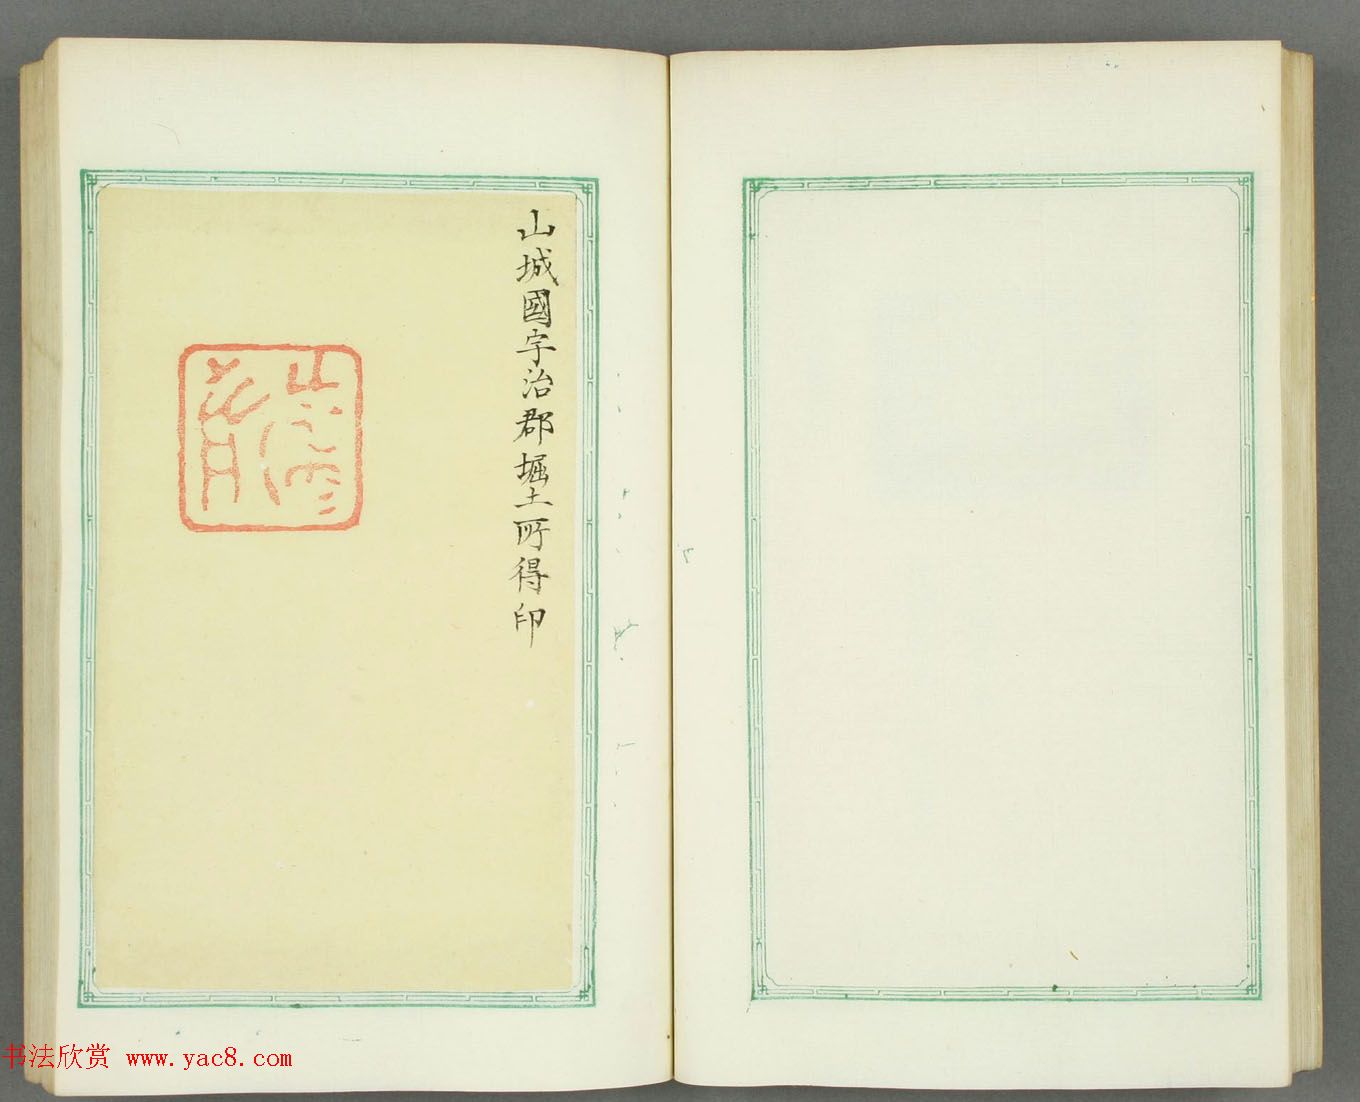 山城國宇治郡堀土所得印
书法欣赏 www.yac8.com